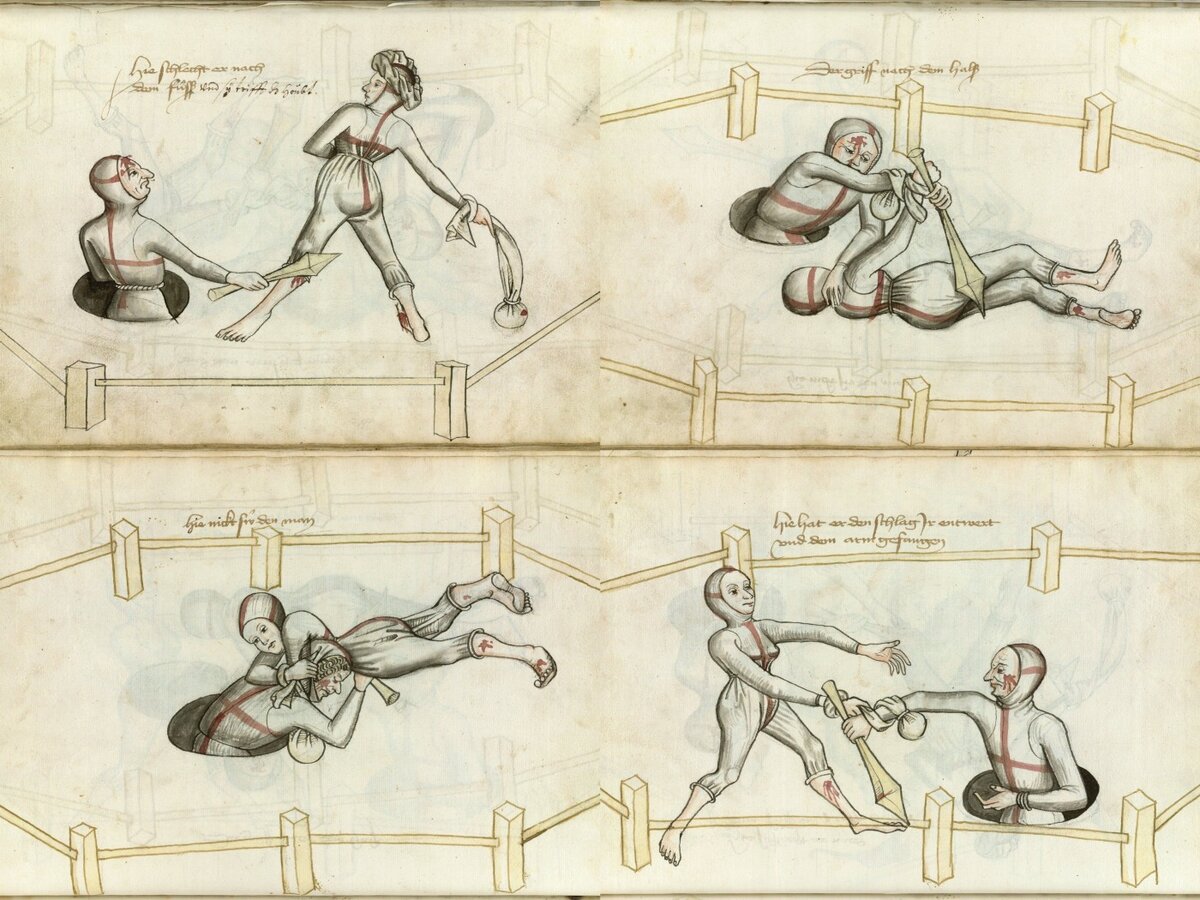 Hie schlecht er nach
dem fůß vnd sy trifft dz houbt
Der griff nach dem halß
hie nickt sy den man
hie hat er den schlag Ir entwert
vnd dem arm gefangen